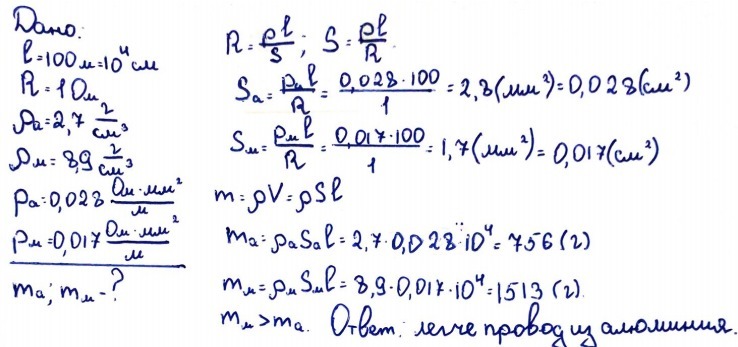 Дано:
l=100м=10⁴см
R=1Ом
ρа=2,7 г/см³
ρм=8,9 г/см³
ρа=0,028 Ом·мм²/м
ρм=0,017 Ом·мм²/м
mа; mм-?
R=ρl/S; S=ρl/R.
Sа=ρаl/R=0,028·100/1=2,8(мм²)=0,028(см²)
Sм=ρмl/R=0,017·100/1=1,7(мм²)=0,017(см²)
m=ρV=ρSl
mа=ρаSаl=2,7·0,028·10⁴=756(г)
mм=ρмSмl=8,9·0,017·10⁴=1513(г).
mм>mа. Ответ: легче провод из алюминия.